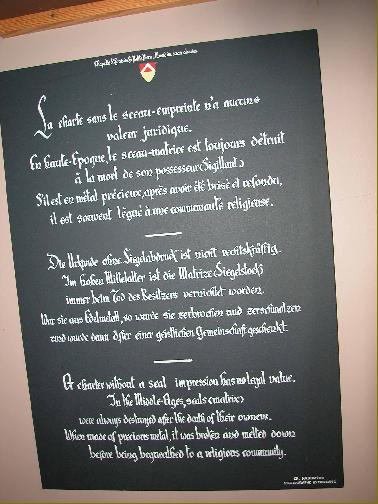 La charte sans le sceau-empreinte n'a aucune
valeur juridique.
En haute-Epoque, le sceau-matrice est toujours détruit
à la mort de son possesseur (Sigillant)
S'il est en métal précieux, après avoir été brisé et refondu,
il est souvent légué à une communauté religieuse.
Die Urkunde ohne Siegelabdruck ist nicht rechtskräftig.
Im hohen Mittelalter ist die Matrize (Siegelstock)
immer beim Tod des Besitzers vernichtet worden.
War sie aus Edelmetall, so wurde sie zerbrochen und zerschmolzen
und wurde dann öfter einer geistlichen Gemeinschaft geschenkt.
A charter without a seal impression has no legal value.
In the Middle-Ages, seals (matrix)
were always destroyed after the death of their owners.
When made of precious metal, it was broken and melted down
before being bequeathed to a religious community.